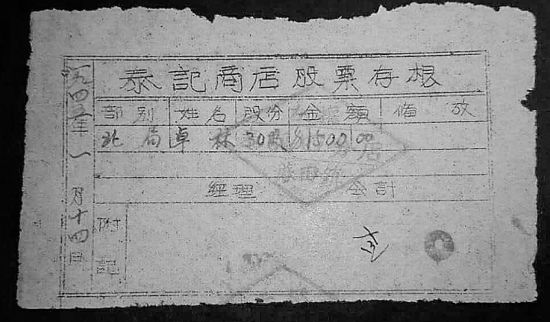 泰記商店股票存根
部别 姓名 股份 金額 備攷
北局 卓林 30股 $1500.00
經理 會計
附記
一九四二年一月十四日